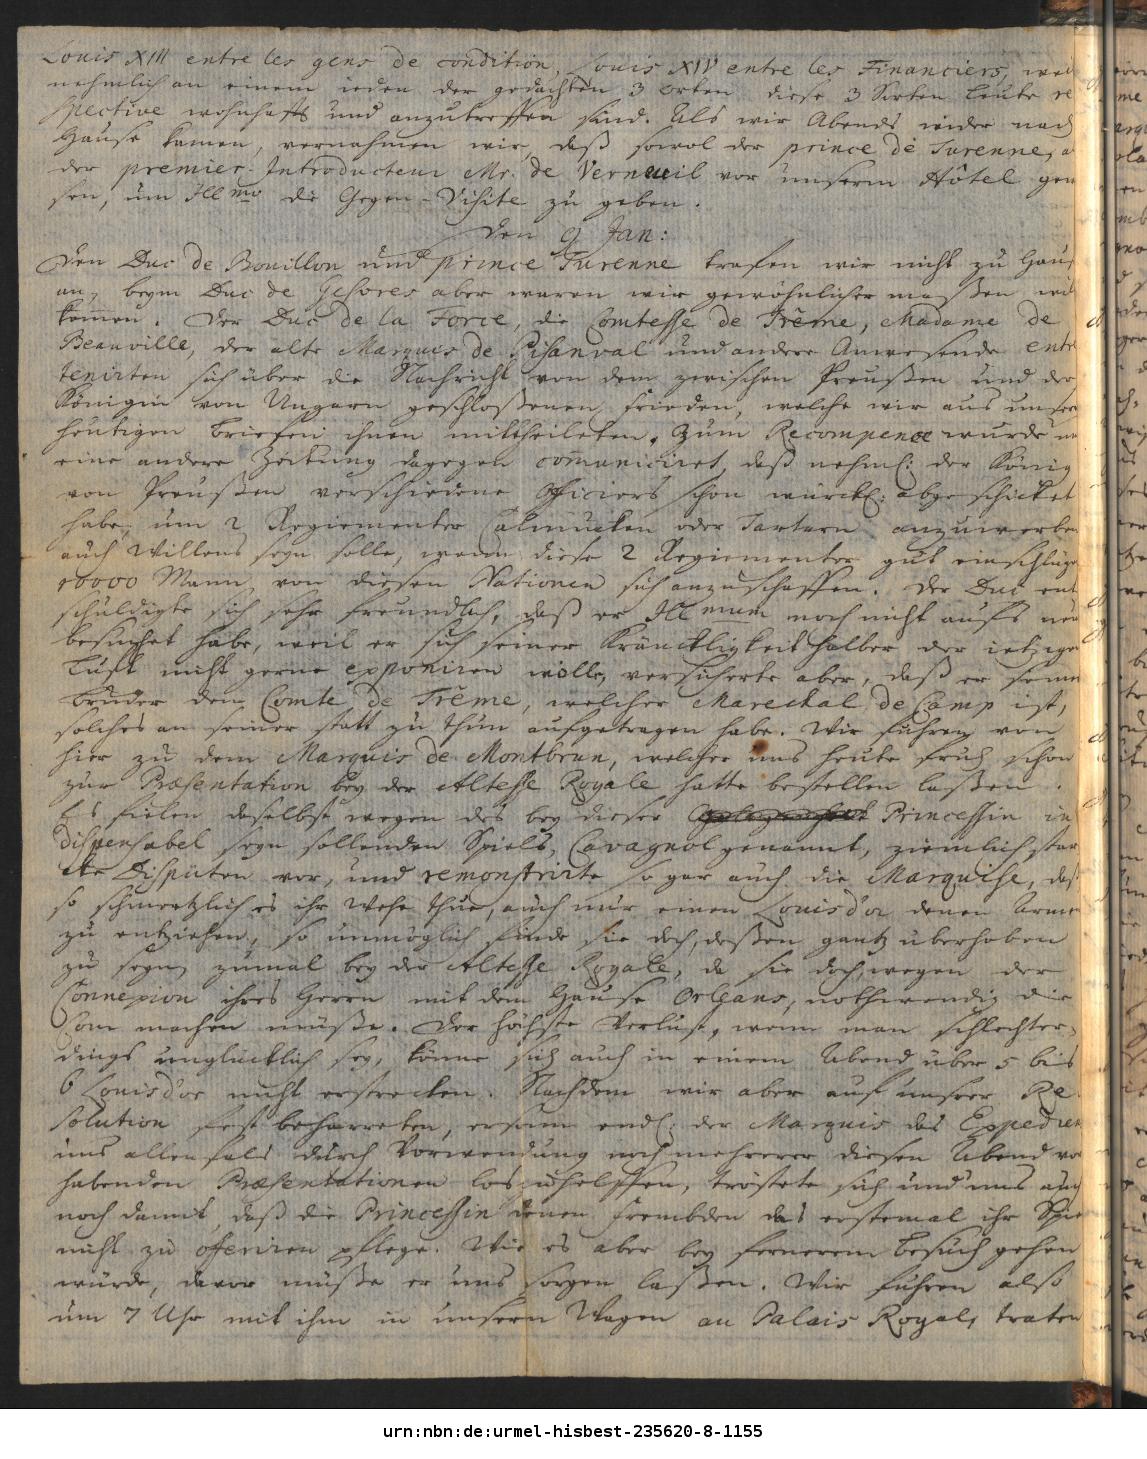 Louis XIII entre les gens de condition, Louis XIV entre les Financiers, weil
nehmlich an einem ieden der gedachten 3 Orten diese 3 Sorten Leute re
spective wohnhafft und anzutreffen sind. Als wir Abends wider nach
Hause kamen, vernahmen wir, daß sowol der prince de Turenne, a
der premier Introducteur Mr. de Verneuil vor unserm Hôtel gew
sen, um Illmo die Gegen-Visite zu geben.
Den 9 Jan:
Den Duc de Bouillon und prince Turenne trafen wir nicht zu Hauß
an, beym Duc de Gesvres aber waren wir gewöhnlicher maßen wil
kom̄en. Der Duc de la Force, die Comtesse de Trême, Madame de
Beauville, der alte Marquis de und andere Anwesende ente
tenirten sich über die Nachricht von dem zwischen Preußen und der
Königin von Ungarn geschloßenen Frieden, welche wir aus unser
heutigen Briefen ihnen mittheileten. Zum Recompence wurde un
eine andere Zeitung dagegen com̄uniciret, daß nehml: der König
von Preußen verschiedene Officiers schon würckl: abgeschicket
habe, um 2 Regimenter Calmucken oder Tartarn anzuwerben
auch Willens seyn solle, wenn diese 2 Regimenter gut einschlügen
10000 Mann von diesen Nationen sich anzuschaffen. Der Duc ent
schuldigte sich sehr freundlich, daß er Illmum noch nicht aufs neu
besuchet habe, weil er sich seiner Kräncklichkeit halber der ietzigen
Luft nicht gerne exponiren wolle, versicherte aber, daß er seinem
Bruder dem Comte de Trême, welcher Marechal de Camp ist,
solches an seiner statt zu thun aufgetragen habe. Wir fuhren von
hier zu dem Marquis de Montbrun, welcher uns heute fruh schon
zur Præsentation bey der Altesse Royale hatte bestellen laßen.
Es fielen daselbst wegen des bey dieser Princessin in
dispensabel seyn sollenden Spiels, Cavagnol genannt, ziemlich star
cke Dispüten vor, und remonstrirte so gar auch die Marquise, daß
so schmertzlich es ihr wehe thue, auch nur einen Louisd'or denen Armen
zu entziehen, so unmöglich finde sie doch, deßen gantz überhoben
zu seyn, zumal bey der Altesse Royale, da sie doch, wegen der
Connexion ihres Herrn mit dem Hause Orleans, nothwendig die
Cour machen müße. Der höchste Verlust, wenn man schlechter-
dings unglücklich sey, könne sich auch in einem Abend über 5 bis
6 Louisd'or nicht erstrecken. Nachdem wir aber auf unserer Re-
solution fest beharreten, ersann endl: der Marquis das Expedien
uns allenfals durch Vorwendung noch mehrerer diesen Abend vor
habenden Præsentationen loszuhelffen, tröstete sich und uns auch
noch damit, daß die Princessin denen Frembden das erstemal ihr Spie
nicht zu offeriren pflege. Wie es aber bey fernerem Besuch gehen
würde, davor müße er uns sorgen laßen. Wir fuhren also
um 7 Uhr mit ihm in unserm Wagen au Palais Royal, traten
urn:nbn:de:urmel-hisbest-235620-8-1155